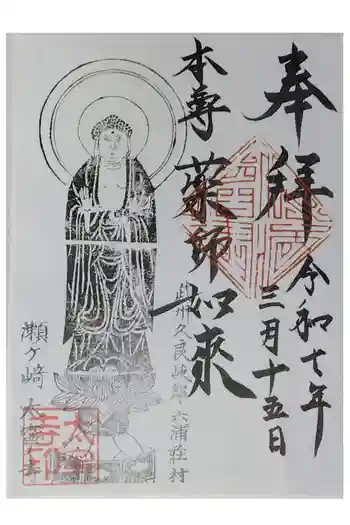 奉拝
令和七年
三月十五日
本尊
薬師如来
久良岐郡六浦荘村
瀬ヶ崎